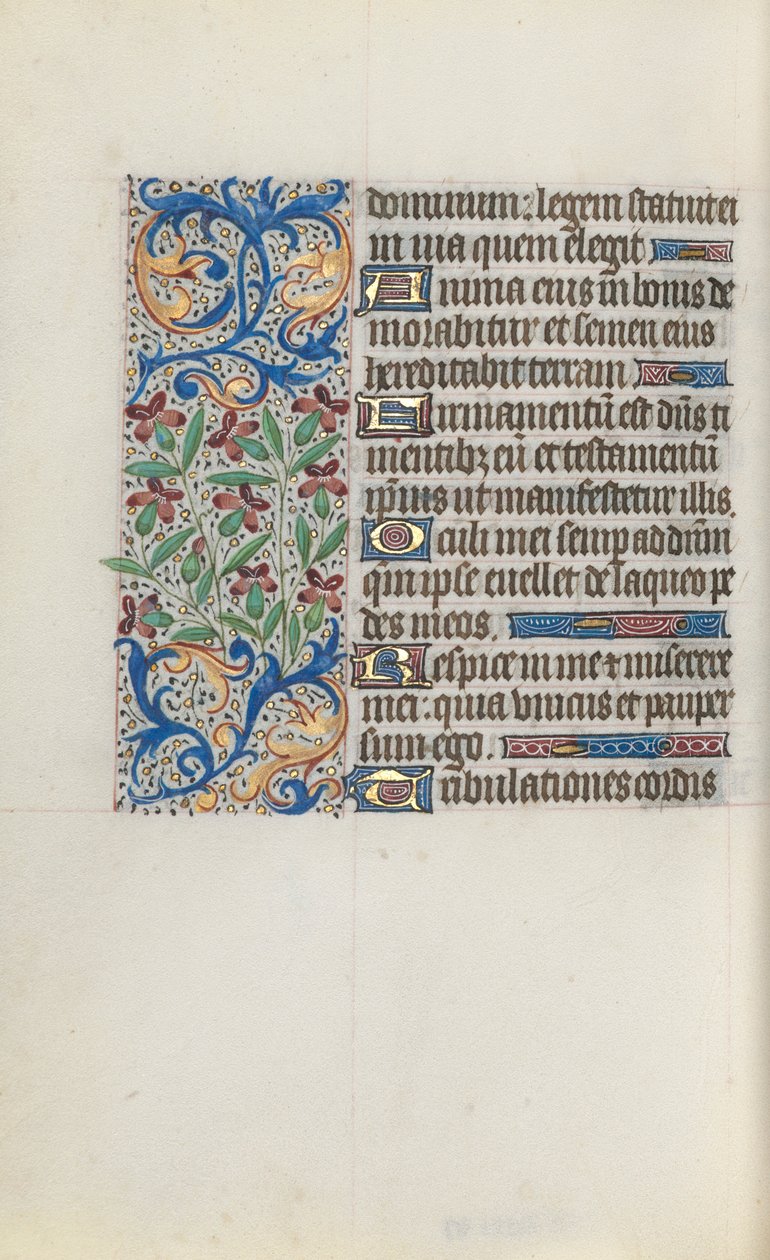 dominum: legem statuit ei
in uia quem elegit
Anima eius in bonis de
morabitur et semen eius
hereditabit terram
Firmamentū est dn̄s ti
mentibꝫ eū et testamentū
ip̄ius ut manifestetur illis.
Oculi mei semꝑ ad dn̄m
qm̄ ipse euellet de laqueo pe
des meos.
Respice in me ⁊ miserere
mei: quia vnicus et pauper
sum ego.
Tribulationes cordis